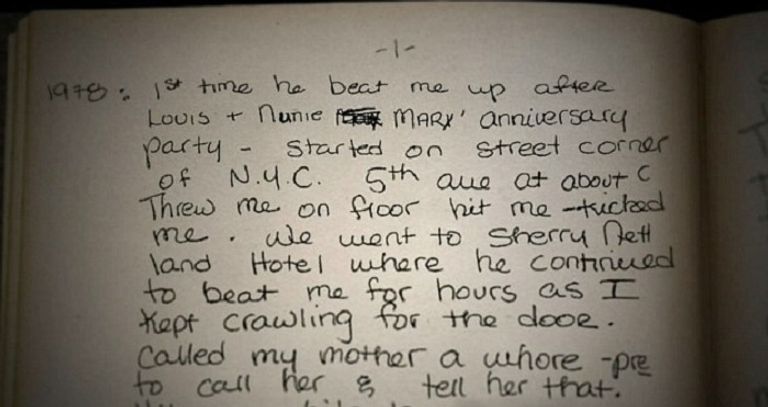 -1-
1978: 1st time he beat me up after
Louis + Nunie MARX' anniversary
party - started on street corner
of N.Y.C. 5th ave at about
Threw me on floor hit me - kicked
me. We went to Sherry Neth
land Hotel where he continued
to beat me for hours as I
kept crawling for the door.
Called my mother a whore - pre
to call her & tell her that.